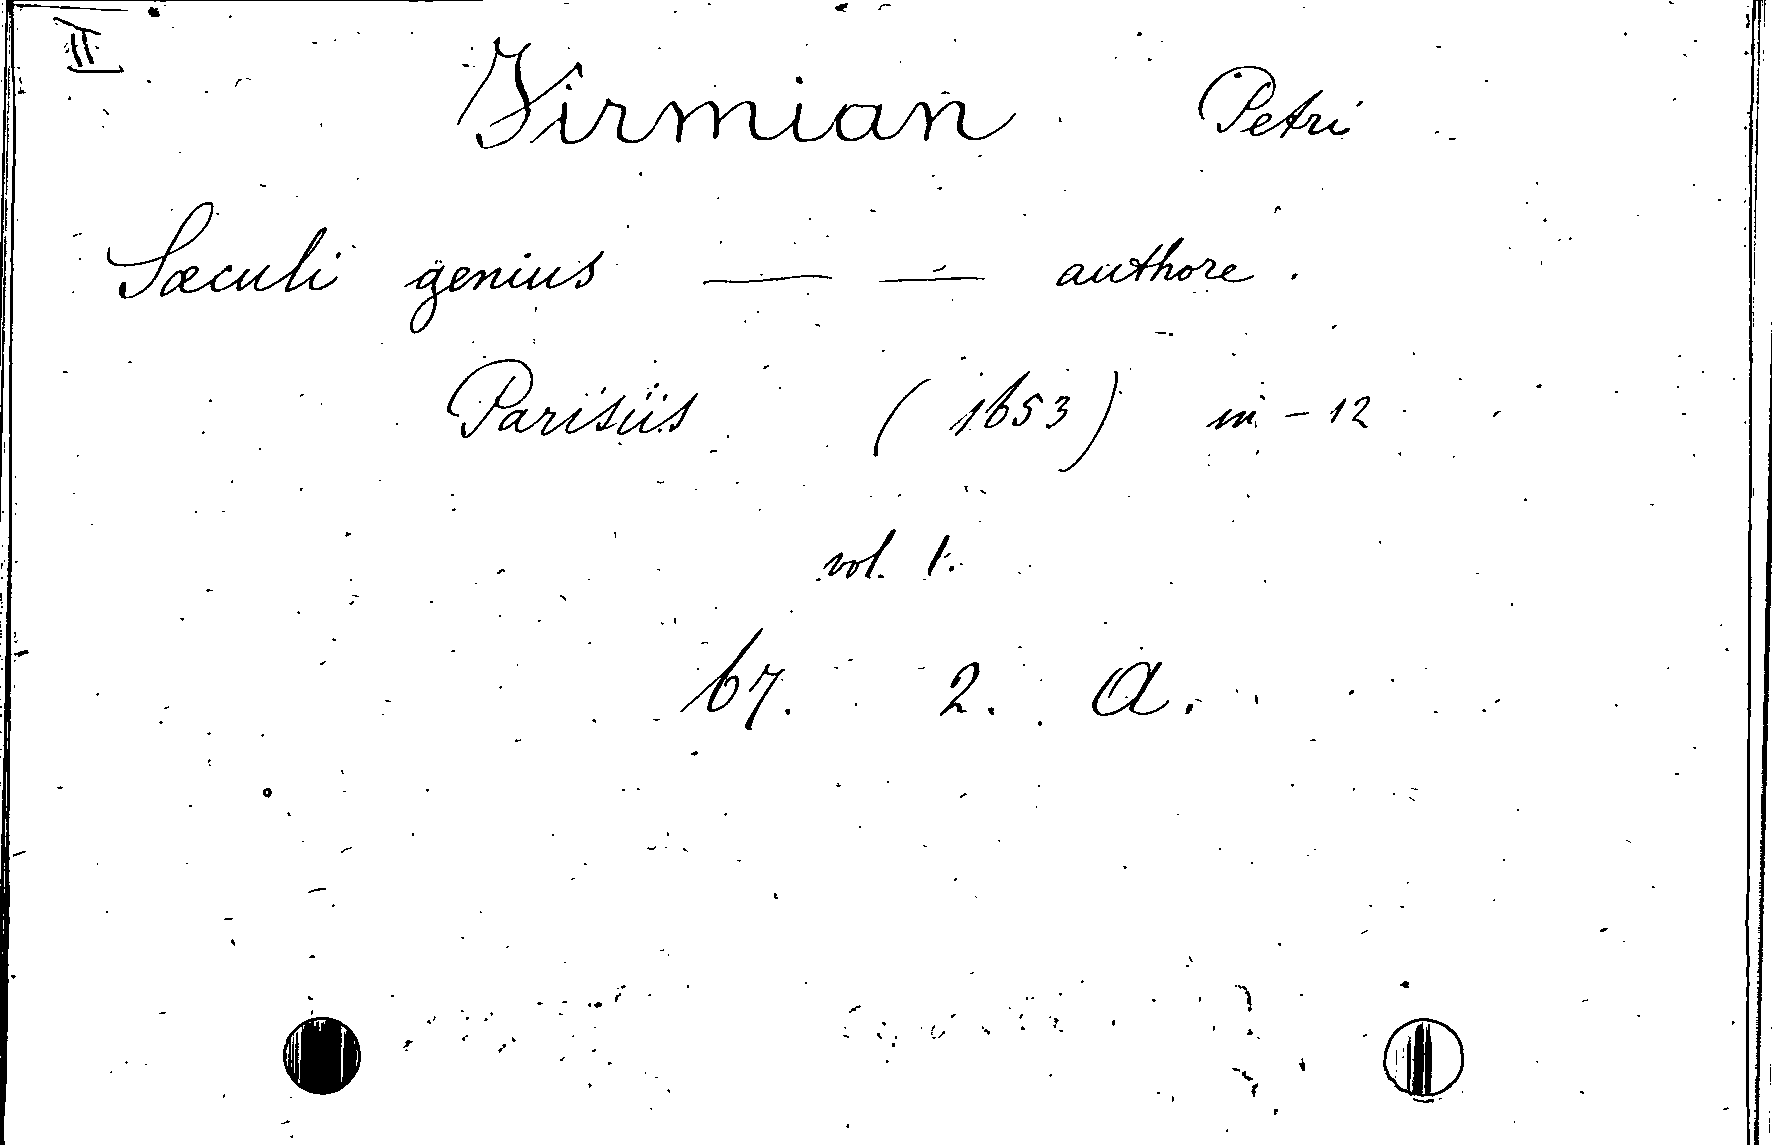 II
Firmian Petri
Sæculi genius — — authore.
Parisiis (1653) in-12
vol. 1.
67. 2. A.